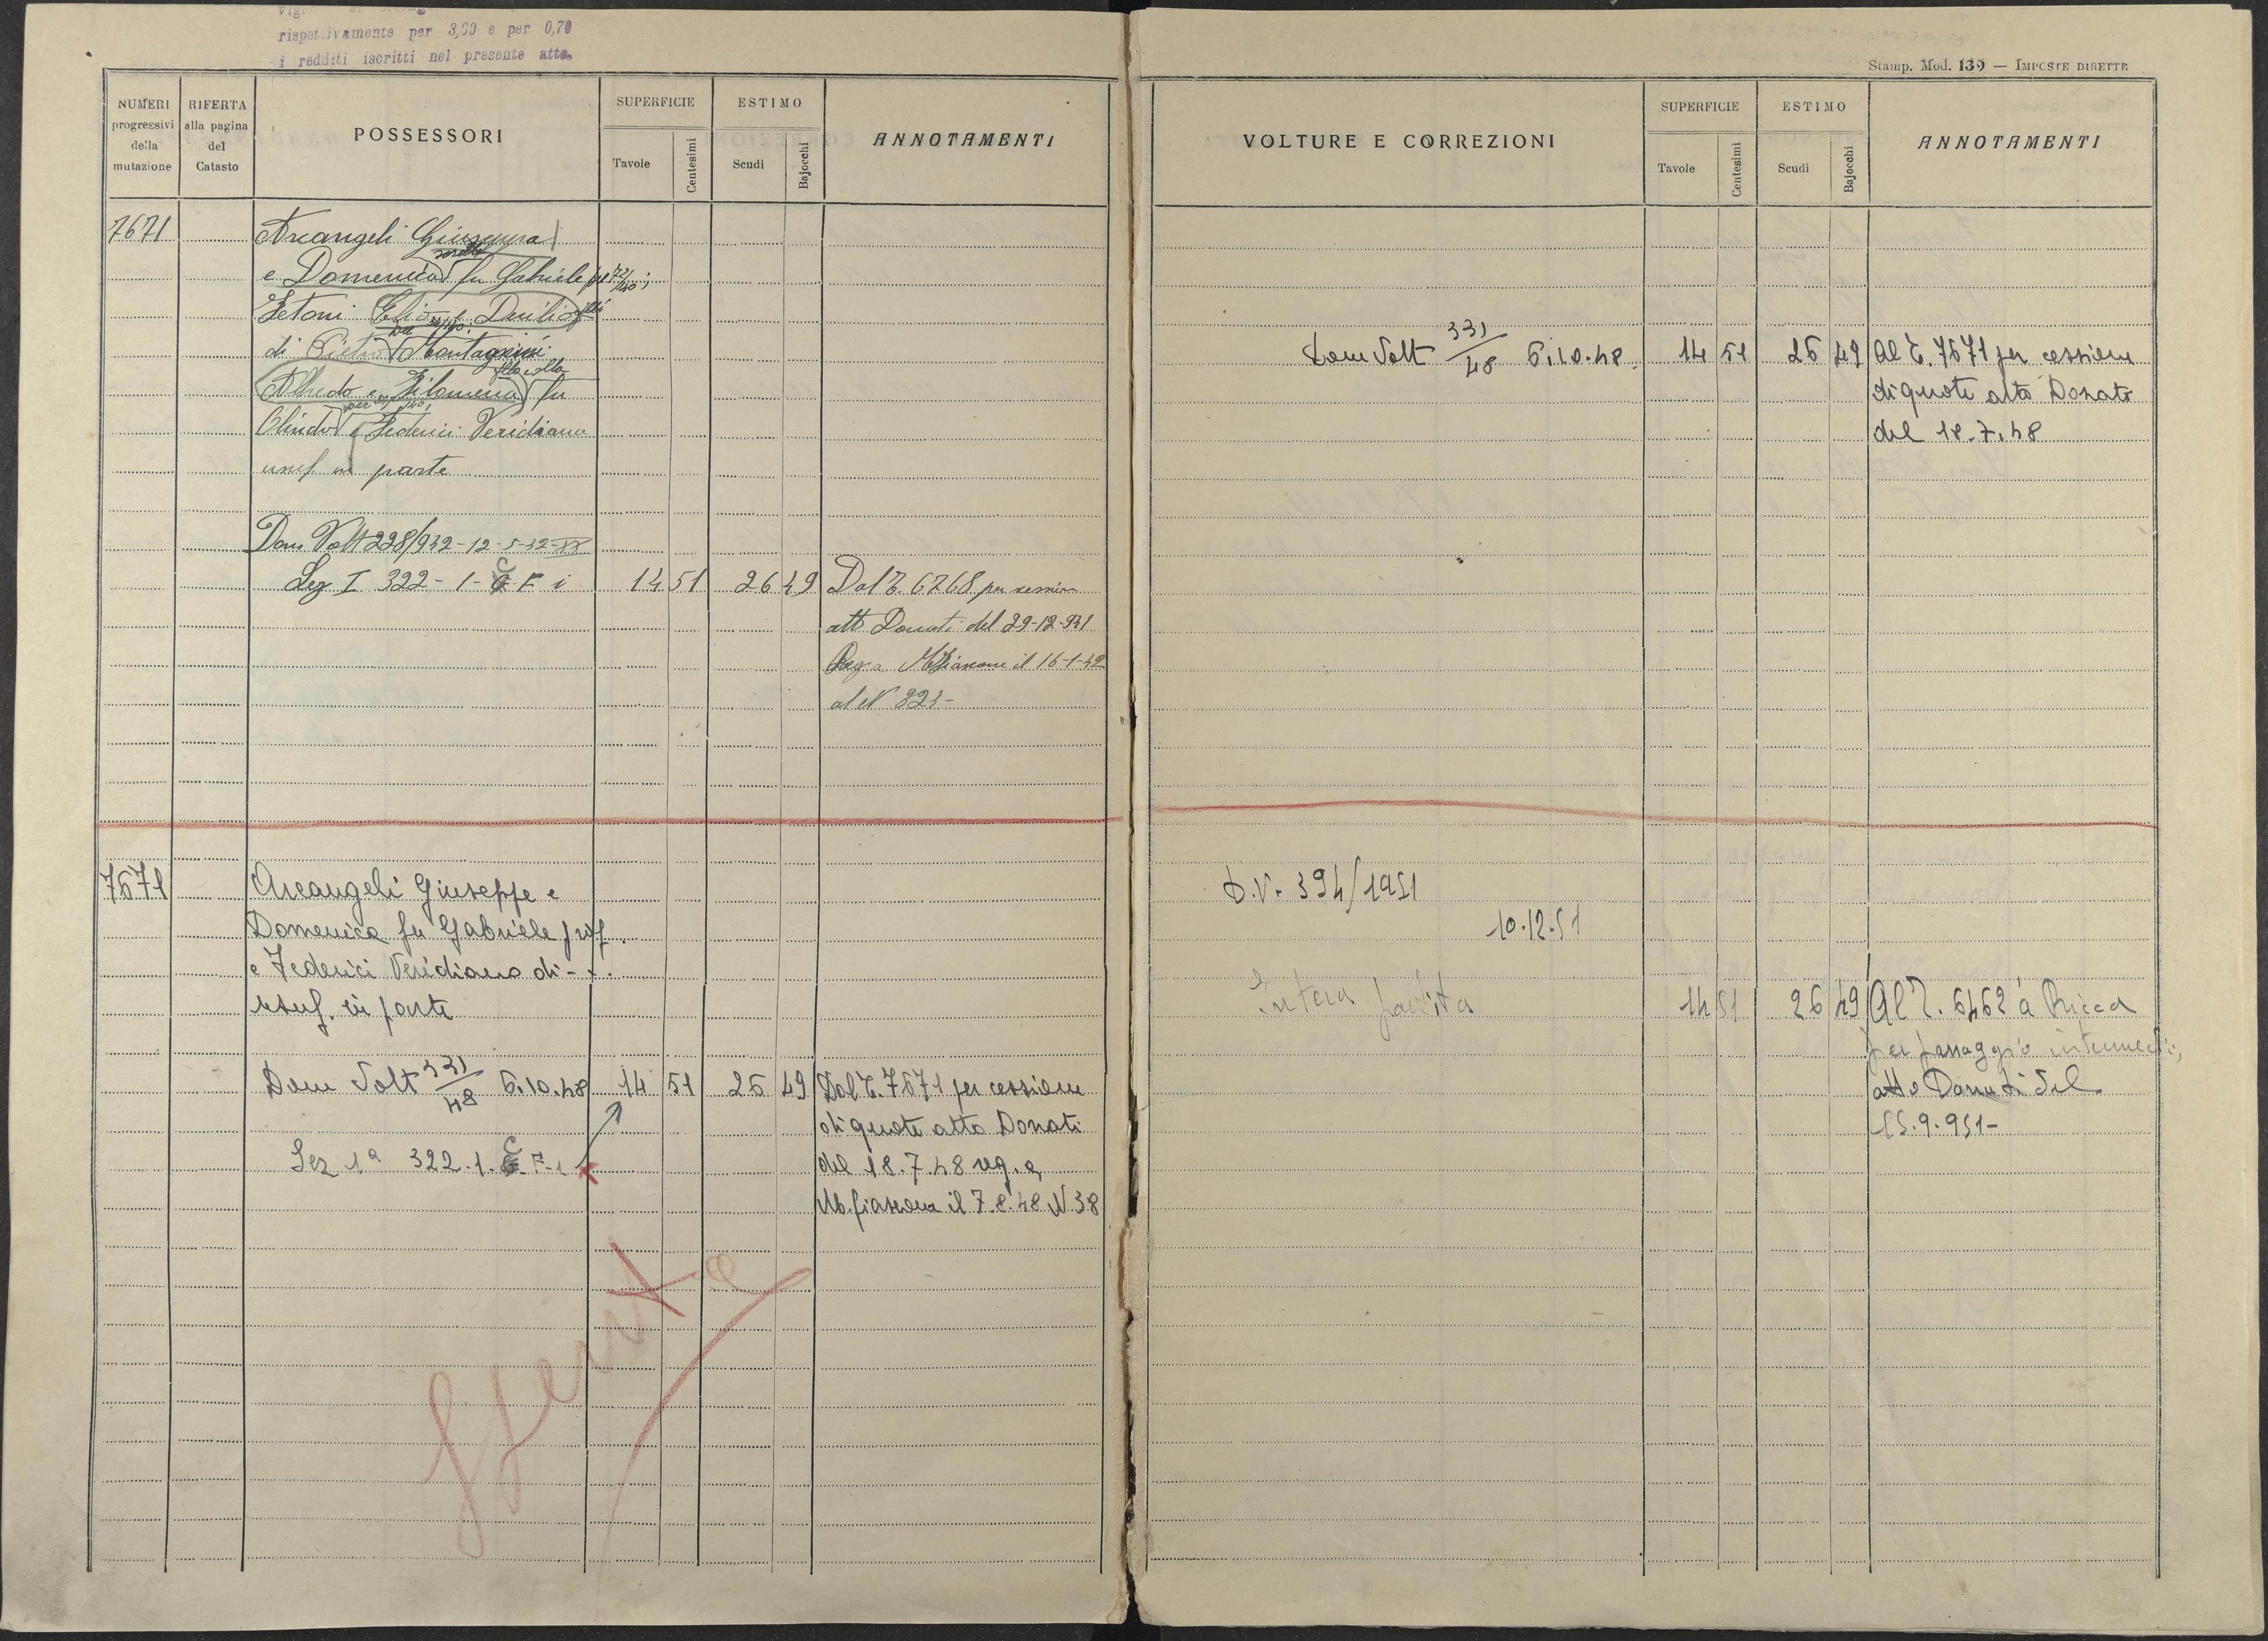 rispettivamente per 3,00 e per 0,70
i redditi iscritti nel presente atto.
Stamp. Mod. 139 — IMPOSTE DIRETTE
NUMERI progressivi della mutazione
RIFERTA alla pagina del Catasto
POSSESSORI
SUPERFICIE
Tavole
Centesimi
ESTIMO
Scudi
Bajocchi
ANNOTAMENTI
VOLTURE E CORREZIONI
SUPERFICIE
Tavole
Centesimi
ESTIMO
Scudi
Bajocchi
ANNOTAMENTI
7671
Arcangeli Giuseppa
e Domenica fu Gabriele
Setoni Clio e Duilio
di Pietro Montagnini
Alfredo e Filomena fu
Olindo e Federici Veridiana
usuf in parte
Dom Volt 228/942-12-5-42-XX
Sez I 322-1-C F i 14 51 26 49
Dal T. 6768 per cession
atto Donati del 29-12-941
Reg a M Fiascone il 16-1-42
al N 323-
Dom Volt 331/48 6.10.48. 14 51 26 49
Al T. 7671 per cessione
di quote atto Donati
del 18.7.48
7671
Arcangeli Giuseppe e
Domenica fu Gabriele prof
e Federici Veridiana di -
usuf. in parte
Dom Volt 331/48 6.10.48 14 51 26 49
Sez 1ª 322.1.C F-1
Dal T. 7671 per cessione
di quote atto Donati
del 18.7.48 reg. a
M. fiascone il 7.8.48 N 38
Sferita
D.V. 394/1951
10.12.51
Intera partita 14 51 26 49
Al T. 6462 a Ricca
per passaggio intermedio,
atto Donati del
15.9.951-